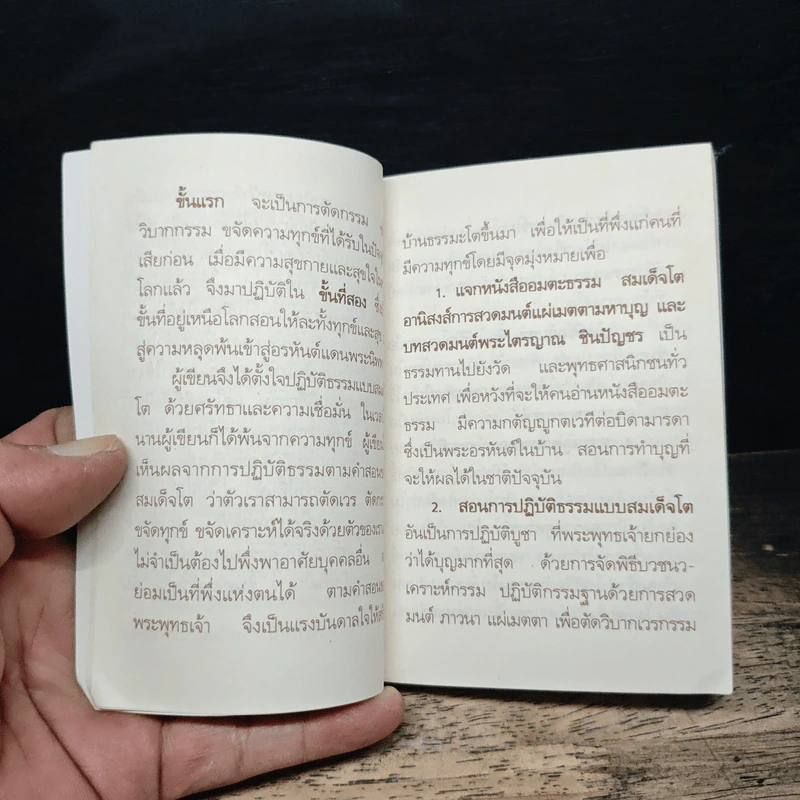 ขั้นแรก จะเป็นการตัดกรรม
วิบากกรรม ขจัดความทุกข์ที่ได้รับใน
เสียก่อน เมื่อมีความสุขกายและสุขใจใน
โลกแล้ว จึงมาปฏิบัติใน ขั้นที่สอง
ขั้นที่อยู่เหนือโลกสอนให้ละทั้งทุกข์และสุข
สู่ความหลุดพ้นเข้าสู่อรหันต์แดนพระ
ผู้เขียนจึงได้ตั้งใจปฏิบัติธรรมแบบ
โต ด้วยศรัทธาและความเชื่อมั่น ใน
นานผู้เขียนก็ได้พ้นจากความทุกข์
เห็นผลจากการปฏิบัติธรรมตามคำ
สมเด็จโต ว่าตัวเราสามารถตัดเวร
ขจัดทุกข์ ขจัดเคราะห์ได้จริงด้วยตัวของ
ไม่จำเป็นต้องไปพึ่งพาอาศัยบุคคลอื่น
ย่อมเป็นที่พึ่งแห่งตนได้ ตามคำ
พระพุทธเจ้า จึงเป็นแรงบันดาลใจให้
บ้านธรรมะโตขึ้นมา เพื่อให้เป็นที่พึ่งแก่คนที่
มีความทุกข์โดยมีจุดมุ่งหมายเพื่อ
1. แจกหนังสืออมตะธรรม สมเด็จโต
อานิสงส์การสวดมนต์แผ่เมตตามหาบุญ และ
บทสวดมนต์พระไตรญาณ ชินปัญชร เป็น
ธรรมทานไปยังวัด และพุทธศาสนิกชนทั่ว
ประเทศ เพื่อหวังที่จะให้คนอ่านหนังสืออมตะ
ธรรม มีความกตัญญูกตเวทีต่อบิดามารดา
ซึ่งเป็นพระอรหันต์ในบ้าน สอนการทำบุญที่
จะให้ผลได้ในชาติปัจจุบัน
2. สอนการปฏิบัติธรรมแบบสมเด็จโต
อันเป็นการปฏิบัติบูชา ที่พระพุทธเจ้ายกย่อง
ว่าได้บุญมากที่สุด ด้วยการจัดพิธีบวชนว-
เคราะห์กรรม ปฏิบัติกรรมฐานด้วยการสวด
มนต์ ภาวนา แผ่เมตตา เพื่อตัดวิบากเวรกรรม